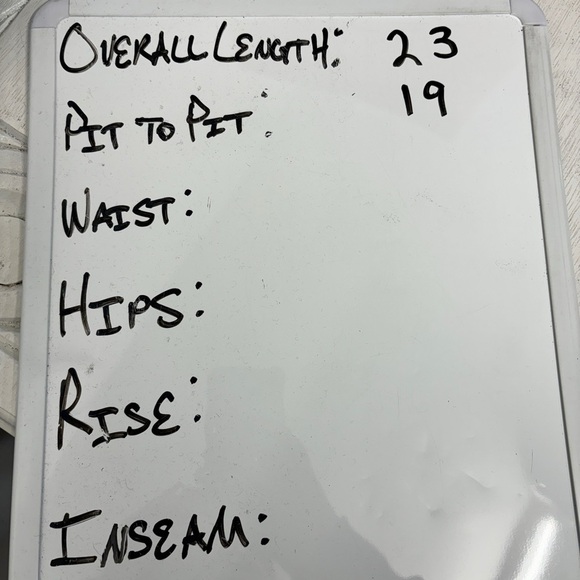 OVERALL LENGTH: 23
PIT TO PIT: 19
WAIST:
HIPS:
RISE:
INSEAM: